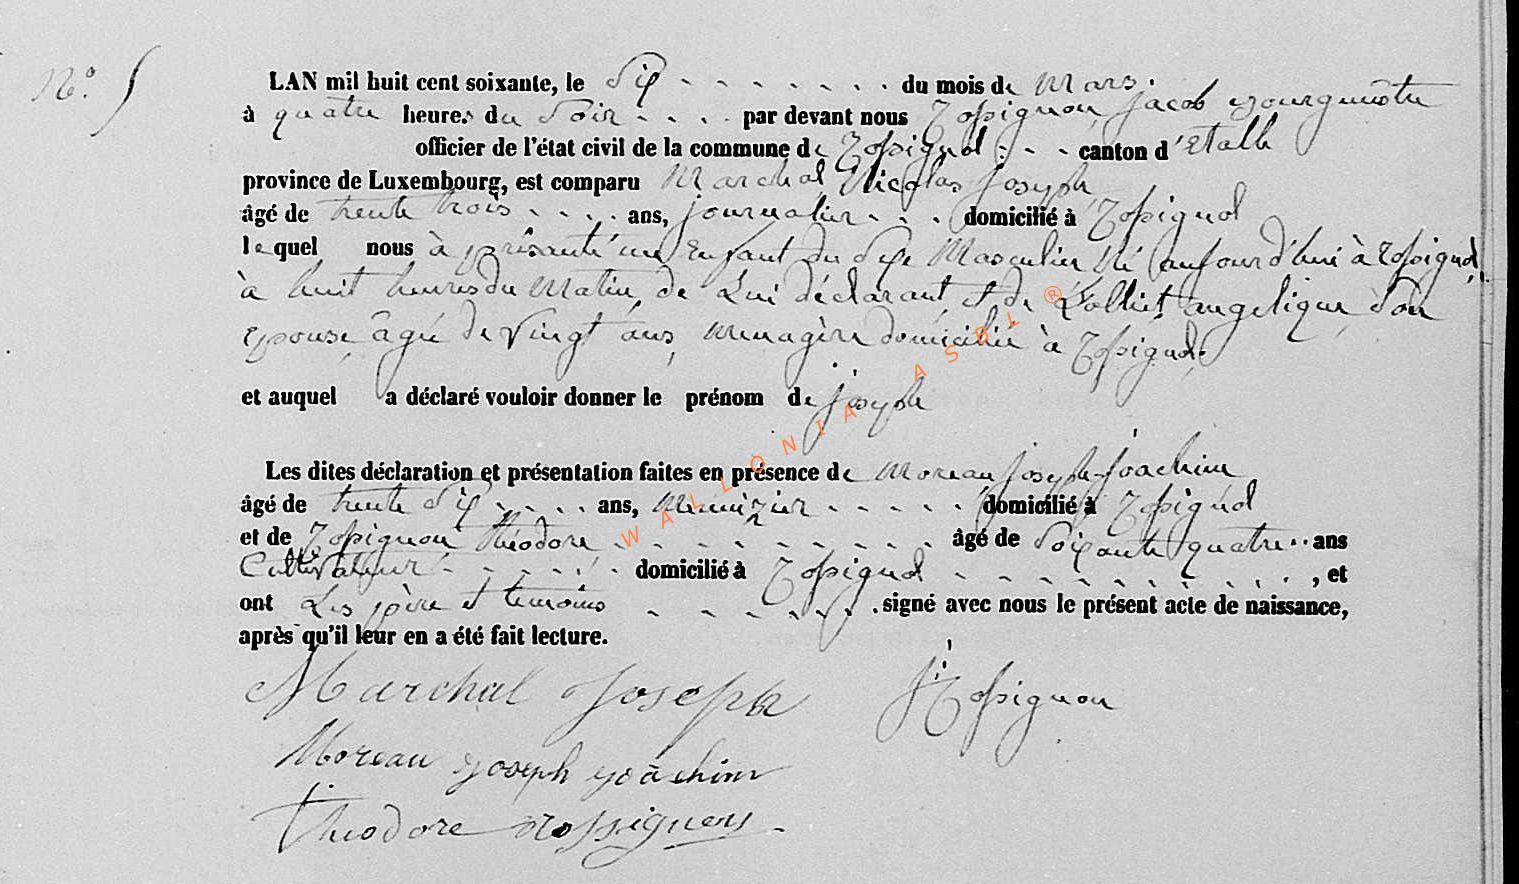 N.° 5
LAN mil huit cent soixante, le Six du mois de Mars
à quatre heures du Soir par devant nous Rossignon Jacob Bourguemêtre
officier de l'état civil de la commune de Rossignol canton d'Etalle
province de Luxembourg, est comparu Marchal Nicolas Joseph
âgé de trente trois ans, journalier domicilié à Rossignol
lequel nous à présanté un Enfant du Sexe Masculin Né aujourd'hui à Rossignol,
à huit heures du Matin, de Lui déclarant et de angelique, Son
epouse, âgé de Vingt ans, menagère domiciliée à Rossignol.
et auquel a déclaré vouloir donner le prénom de joseph
Les dites déclaration et présentation faites en présence de Moreau Joseph-Joachim
âgé de trente Six ans, domicilié à Rossignol
et de Rossignon théodore âgé de Soixante quatre ans
Cultivateur domicilié à Rossignol, et
ont Les père et temoins signé avec nous le présent acte de naissance,
après qu'il leur en a été fait lecture.
Marchal Joseph J. Rossignon
Moreau joseph joachim
theodore rossignon
WALLONIA ASBL ®